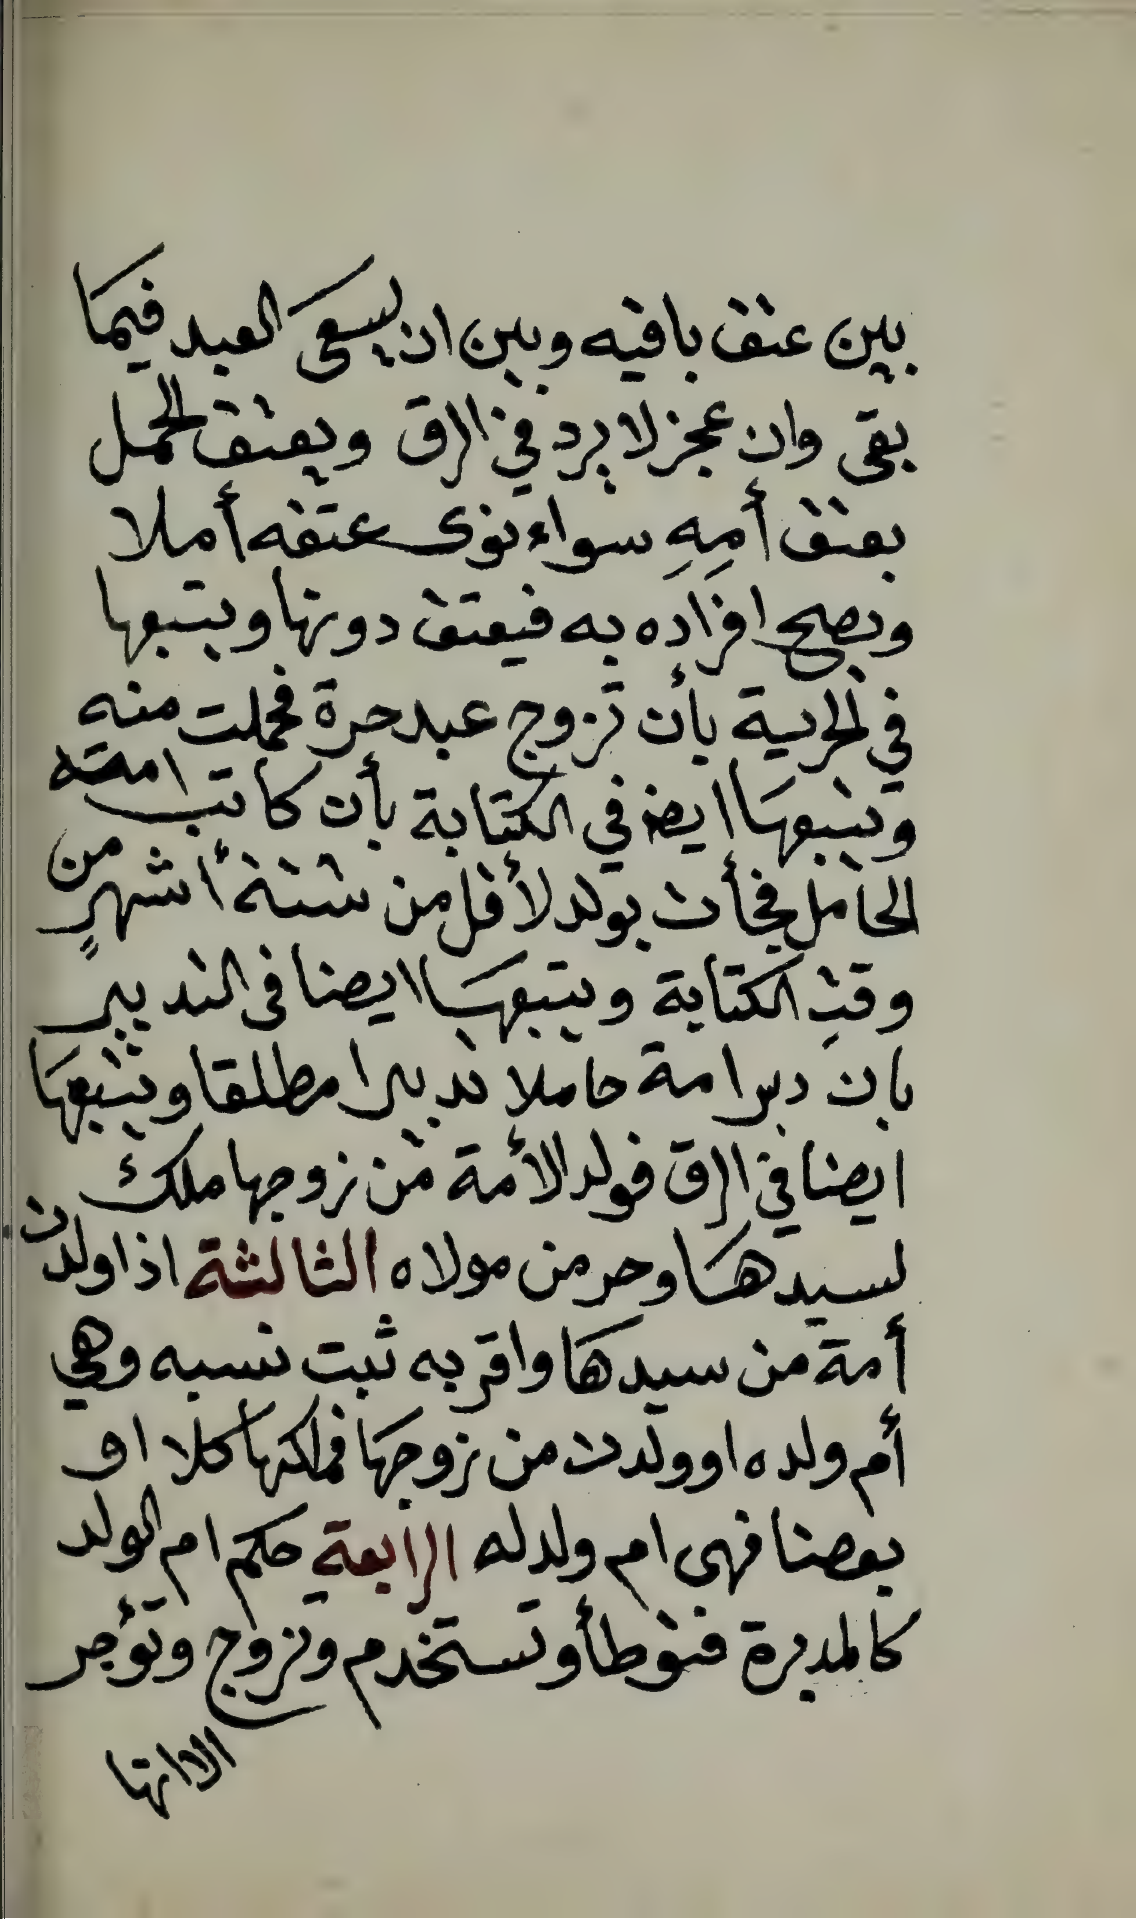 بين عتق باقيه وبين ان يسعى العبد فيما
بقى وان عجز لا يرد في الرق ويعتق الحمل
بعتق أمِهِ سواء نوى عتقه أم لا
ويصح افرَاده به فيعتق دونها ويتبعها
في الحرية بأن تزوج عبد حرة فحملت منه
ويتبعها ايضا في الكتابة بأن كاتب امته
الحامل فجأت بولد لأقل من ستة أشهرٍ من
وقتِ الكتابة ويتبعها ايضا فى التدبير
بان دبر امة حاملا تدبيرا مطلقا ويتبعها
ايضا في الرق فولد الأمة من زوجها ملك
لسيدها وحر من مولاه الثالثة اذا ولدت
أمة من سيدها واقر به ثبت نسبه وهي
أم ولده او ولدت من زوجها فملكها كلا او
بعضا فهى ام ولد له الرابعة حكم ام الولد
كالمدبرة فتوطأ وتستخدم وتزوج وتؤجر
الا انها